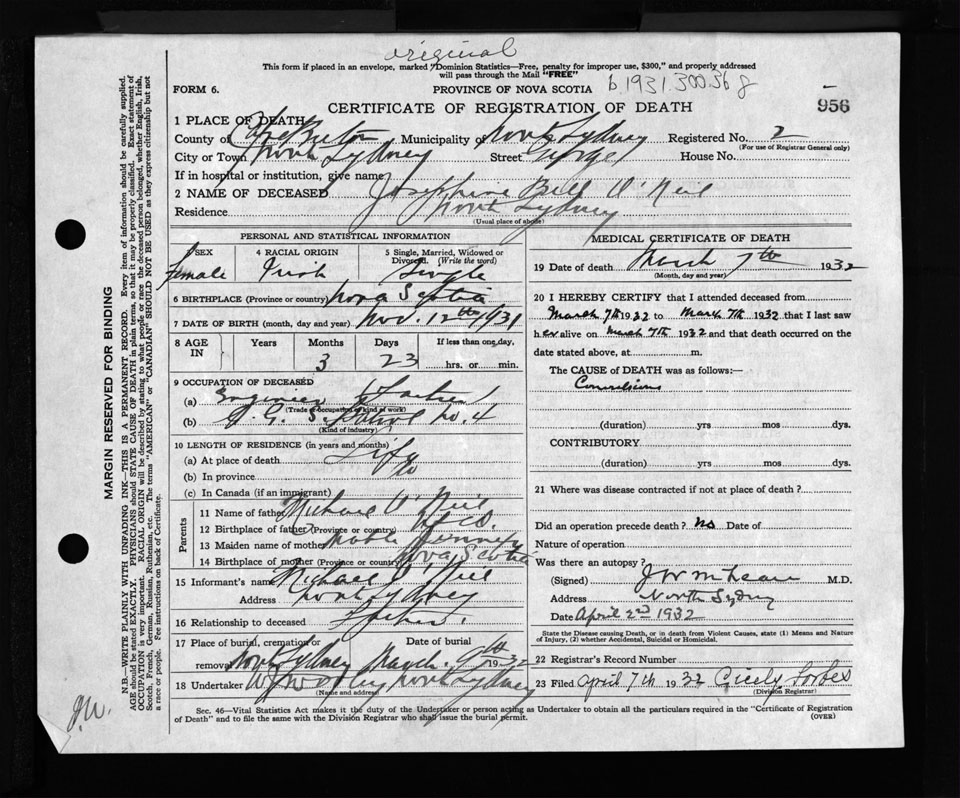 original
This form if placed in an envelope, marked "Dominion Statistics—Free, penalty for improper use, $300," and properly addressed
will pass through the Mail "FREE"
FORM 6. PROVINCE OF NOVA SCOTIA b.1931.300568
CERTIFICATE OF REGISTRATION OF DEATH 956
1 PLACE OF DEATH
County of Cape Breton Municipality of North Sydney Registered No. 2
(For use of Registrar General only)
City or Town North Sydney Street House No.
If in hospital or institution, give name
2 NAME OF DECEASED Josephine Bell O'Neil
Residence North Sydney
(Usual place of abode)
PERSONAL AND STATISTICAL INFORMATION
SEX 4 RACIAL ORIGIN 5 Single, Married, Widowed or
Divorced. (Write the word)
Female Irish Single
6 BIRTHPLACE (Province or country) Nova Scotia
7 DATE OF BIRTH (month, day and year) Nov. 12th 1931
8 AGE IN Years Months Days If less than one day,
3 23 hrs. or min.
9 OCCUPATION OF DECEASED
(a) Engineer
(Trade or occupation or kind of work)
(b) no. 4
(Kind of industry)
10 LENGTH OF RESIDENCE (in years and months)
(a) At place of death Life
(b) In province
(c) In Canada (if an immigrant)
Parents
11 Name of father Michael O'Neil
12 Birthplace of father (Province or country)
13 Maiden name of mother
14 Birthplace of mother (Province or country) Nova Scotia
15 Informant's name Michael O'Neil
Address North Sydney
16 Relationship to deceased Father.
17 Place of burial, cremation or Date of burial
removal North Sydney March 9th 1932
18 Undertaker North Sydney
(Name and address)
MEDICAL CERTIFICATE OF DEATH
19 Date of death March 7th 1932
(Month, day and year)
20 I HEREBY CERTIFY that I attended deceased from
March 7th 1932 to March 7th 1932 that I last saw
her alive on March 7th 1932 and that death occurred on the
date stated above, at m.
The CAUSE of DEATH was as follows:—
Convulsions
(duration) yrs mos dys.
CONTRIBUTORY
(duration) yrs. mos. dys.
21 Where was disease contracted if not at place of death?
Did an operation precede death? No Date of
Nature of operation
Was there an autopsy?
(Signed) M.D.
Address North Sydney
Date April 2nd 1932
State the Disease causing Death, or in death from Violent Causes, state (1) Means and Nature
of Injury, (2) whether Accidental, Suicidal or Homicidal.
22 Registrar's Record Number
23 Filed April 7th 1932 Cicely Forbes
(Division Registrar)
Sec. 46—Vital Statistics Act makes it the duty of the Undertaker or person acting as Undertaker to obtain all the particulars required in the "Certificate of Registration
of Death" and to file the same with the Division Registrar who shall issue the burial permit. (OVER)
MARGIN RESERVED FOR BINDING
N.B.—WRITE PLAINLY WITH UNFADING INK—THIS IS A PERMANENT RECORD. Every item of information should be carefully supplied.
AGE should be stated EXACTLY. PHYSICIANS should STATE CAUSE OF DEATH in plain terms, so that it may be properly classified. Exact statement of
OCCUPATION is very important. RACIAL ORIGIN will be described by stating to what people or race the deceased person belonged, whether English, Irish,
Scotch, French, German, Russian, Ruthenian, etc. The terms "AMERICAN" or "CANADIAN" SHOULD NOT BE USED as they express citizenship but not
a race or people. Fee instructions on back of Certificate.